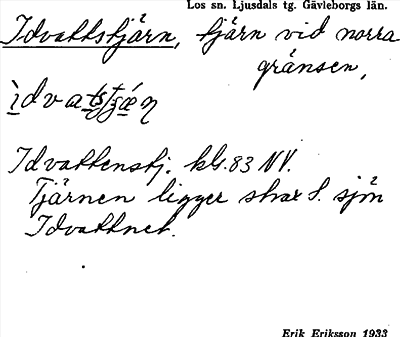 Los sn. Ljusdals tg. Gävleborgs län.
Idvattstjärn, tjärn vid norra
gränsen,
Idvattenstj. kbl. 83 NV.
Tjärnen ligger strax S. sjön
Idvattnet.
Erik Eriksson 1933